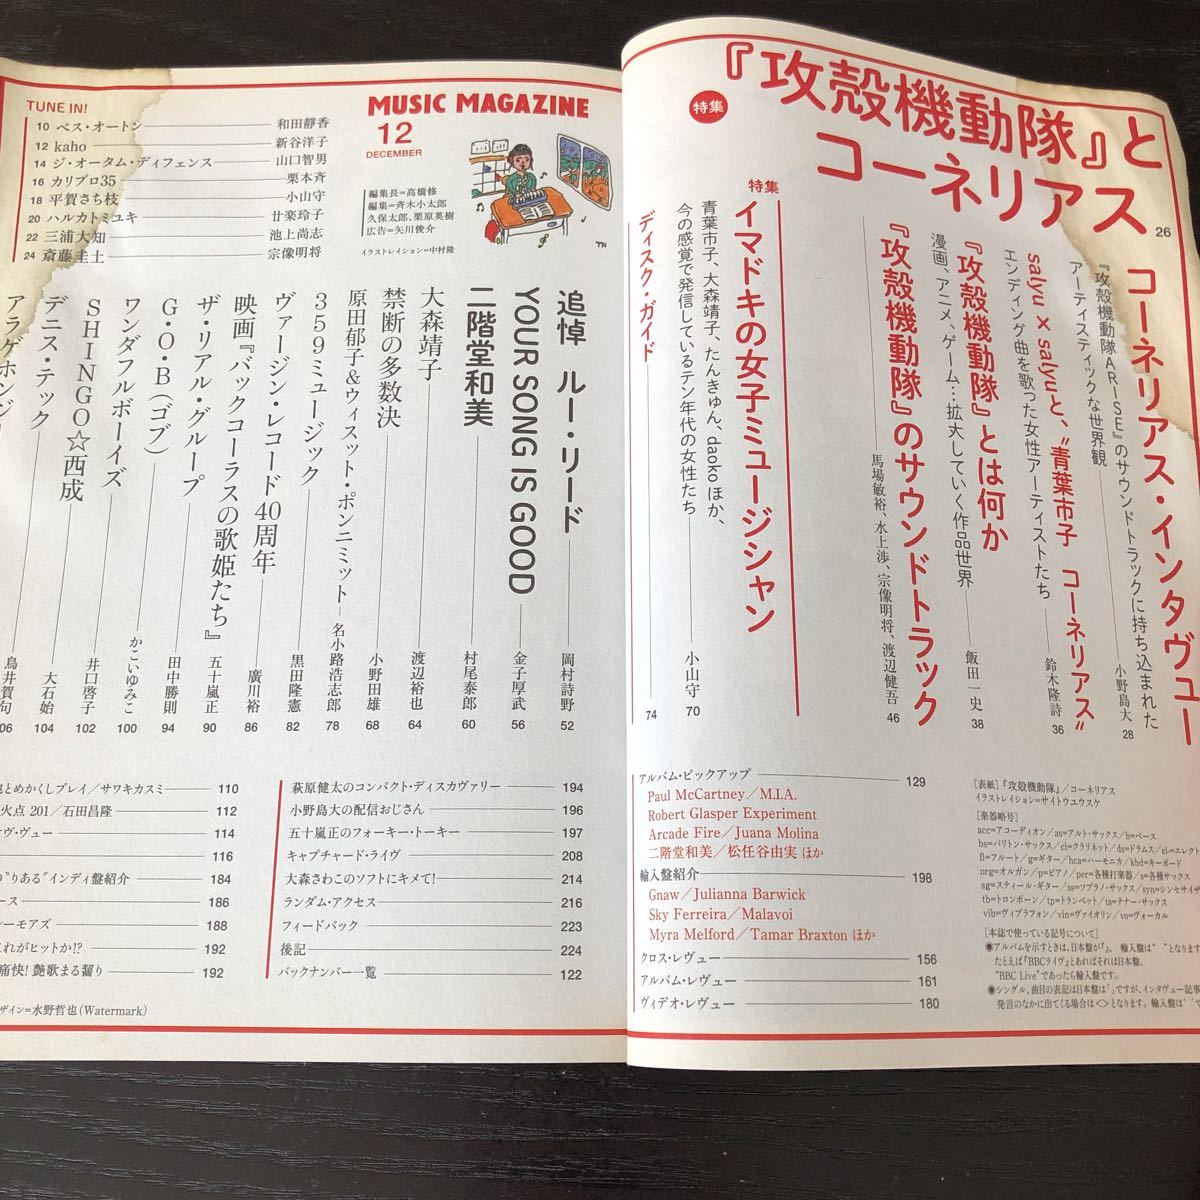 特集
『攻殻機動隊』と
コーネリアス 26
コーネリアス・インタヴュー
『攻殻機動隊ARISE』のサウンドトラックに持ち込まれた
アーティスティックな世界観 小野島大 28
salyu × salyuと、“青葉市子 コーネリアス”
エンディング曲を歌った女性アーティストたち 鈴木隆詩 36
『攻殻機動隊』とは何か
漫画、アニメ、ゲーム…拡大していく作品世界 飯田一史 38
『攻殻機動隊』のサウンドトラック
馬場敏裕、水上渉、宗像明将、渡辺健吾 46
特集
イマドキの女子ミュージシャン
青葉市子、大森靖子、たんきゅん、daokoほか、
今の感覚で発信しているテン年代の女性たち 小山守 70
ディスク・ガイド 74
アルバム・ピックアップ 129
Paul McCartney／M.I.A.
Robert Glasper Experiment
Arcade Fire／Juana Molina
二階堂和美／松任谷由実 ほか
輸入盤紹介 198
Gnaw／Julianna Barwick
Sky Ferreira／Malavoi
Myra Melford／Tamar Braxton ほか
クロス・レヴュー 156
アルバム・レヴュー 161
ヴィデオ・レヴュー 180
［表紙］『攻殻機動隊』／コーネリアス
イラストレイション＝サイトウユウスケ
［楽器略号］
acc=アコーディオン／as=アルト・サックス／b=ベース
bs=バリトン・サックス／cl=クラリネット／ds=ドラムス／el=エレクト
fl=フルート／g=ギター／hca=ハーモニカ／kbd=キーボード
org=オルガン／p=ピアノ／per=各種打楽器／s=各種サックス
sg=スティール・ギター／ss=ソプラノ・サックス／syn=シンセサイザ
tb=トロンボーン／tp=トランペット／ts=テナー・サックス
vib=ヴィブラフォン／vln=ヴァイオリン／vo=ヴォーカル
［本誌で使っている記号について］
◉アルバムを示すときは、日本盤が『』、輸入盤は“ ”となります
たとえば『BBCライヴ』とあればそれは日本盤、
“BBC Live”であったら輸入盤です。
◉シングル、曲目の表記は日本盤は「」ですが、インタヴュー記事
発言のなかに出てくる場合は＜＞となります。輸入盤は‘ ’で
TUNE IN!
10 ベス・オートン 和田靜香
12 kaho 新谷洋子
14 ジ・オータム・ディフェンス 山口智男
16 カリブロ35 栗本斉
18 平賀さち枝 小山守
20 ハルカトミユキ 廿楽玲子
22 三浦大知 池上尚志
24 斎藤圭土 宗像明将
MUSIC MAGAZINE
12
DECEMBER
編集長＝高橋修
編集＝斉木小太郎
久保太郎、栗原英樹
広告＝矢川俊介
イラストレイション＝中村隆
TN
追悼 ルー・リード 岡村詩野 52
YOUR SONG IS GOOD 金子厚武 56
二階堂和美 村尾泰郎 60
大森靖子 渡辺裕也 64
禁断の多数決 小野田雄 68
原田郁子＆ウィスット・ポンニミット 名小路浩志郎 78
359ミュージック 黒田隆憲 82
ヴァージン・レコード40周年 廣川裕 86
映画『バックコーラスの歌姫たち』 五十嵐正 90
ザ・リアル・グループ 田中勝則 94
G・O・B（ゴブ） かこいゆみこ 100
ワンダフルボーイズ 井口啓子 102
SHINGO☆西成 大石始 104
デニス・テック 鳥井賀句 106
アラゲホンジ
萩原健太のコンパクト・ディスカヴァリー 194
小野島大の配信おじさん 196
五十嵐正のフォーキー・トーキー 197
キャプチャード・ライヴ 208
大森さわこのソフトにキメて！ 214
ランダム・アクセス 216
フィードバック 223
後記 224
バックナンバー一覧 122
とめかくしプレイ／サワキカスミ 110
火点 201／石田昌隆 112
ヴ・ヴュー 114
116
“りある”インディ盤紹介 184
ース 186
シーモアズ 188
これがヒットか!? 192
痛快！艶歌まる齧り 192
ザイン＝水野哲也（Watermark）